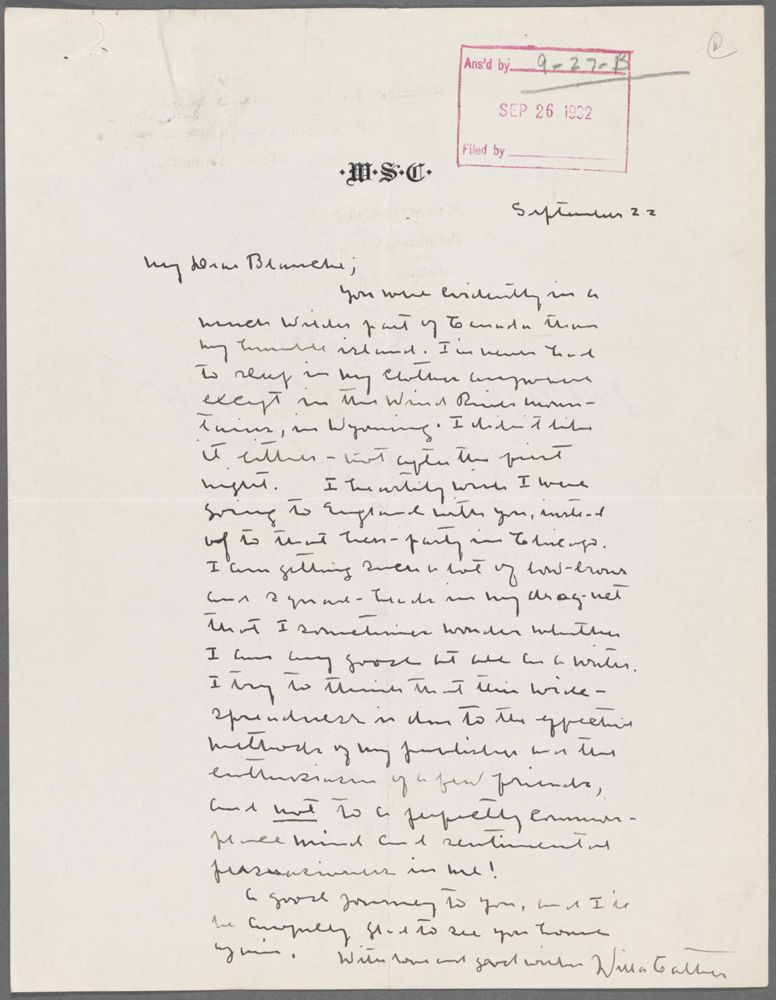 Ans'd by 9-27-B
SEP 26 1932
Filed by
·W·S·C·
September 22
My Dear Blanche;
You were evidently in a
much wilder part of Canada than
my humble island. I've never had
to sleep in my clothes anywhere
except in the Wind River moun-
tains, in Wyoming. I didn't like
it either - not after the first
night. I heartily wish I were
going to England with you, instead
of to that hen-party in Chicago.
I am getting such a lot of low-brows
and square-heads in my drag-net
that I sometimes wonder whether
I am any good at all as a writer.
I try to think that this wide-
spreadness is due to the effective
methods of my publisher and the
enthusiasm of a few friends,
and not to a perfectly common-
place mind and sentimental
in me!
A good journey to you, and I'll
be awfully glad to see you home
again. With love and good wishes Willa Cather